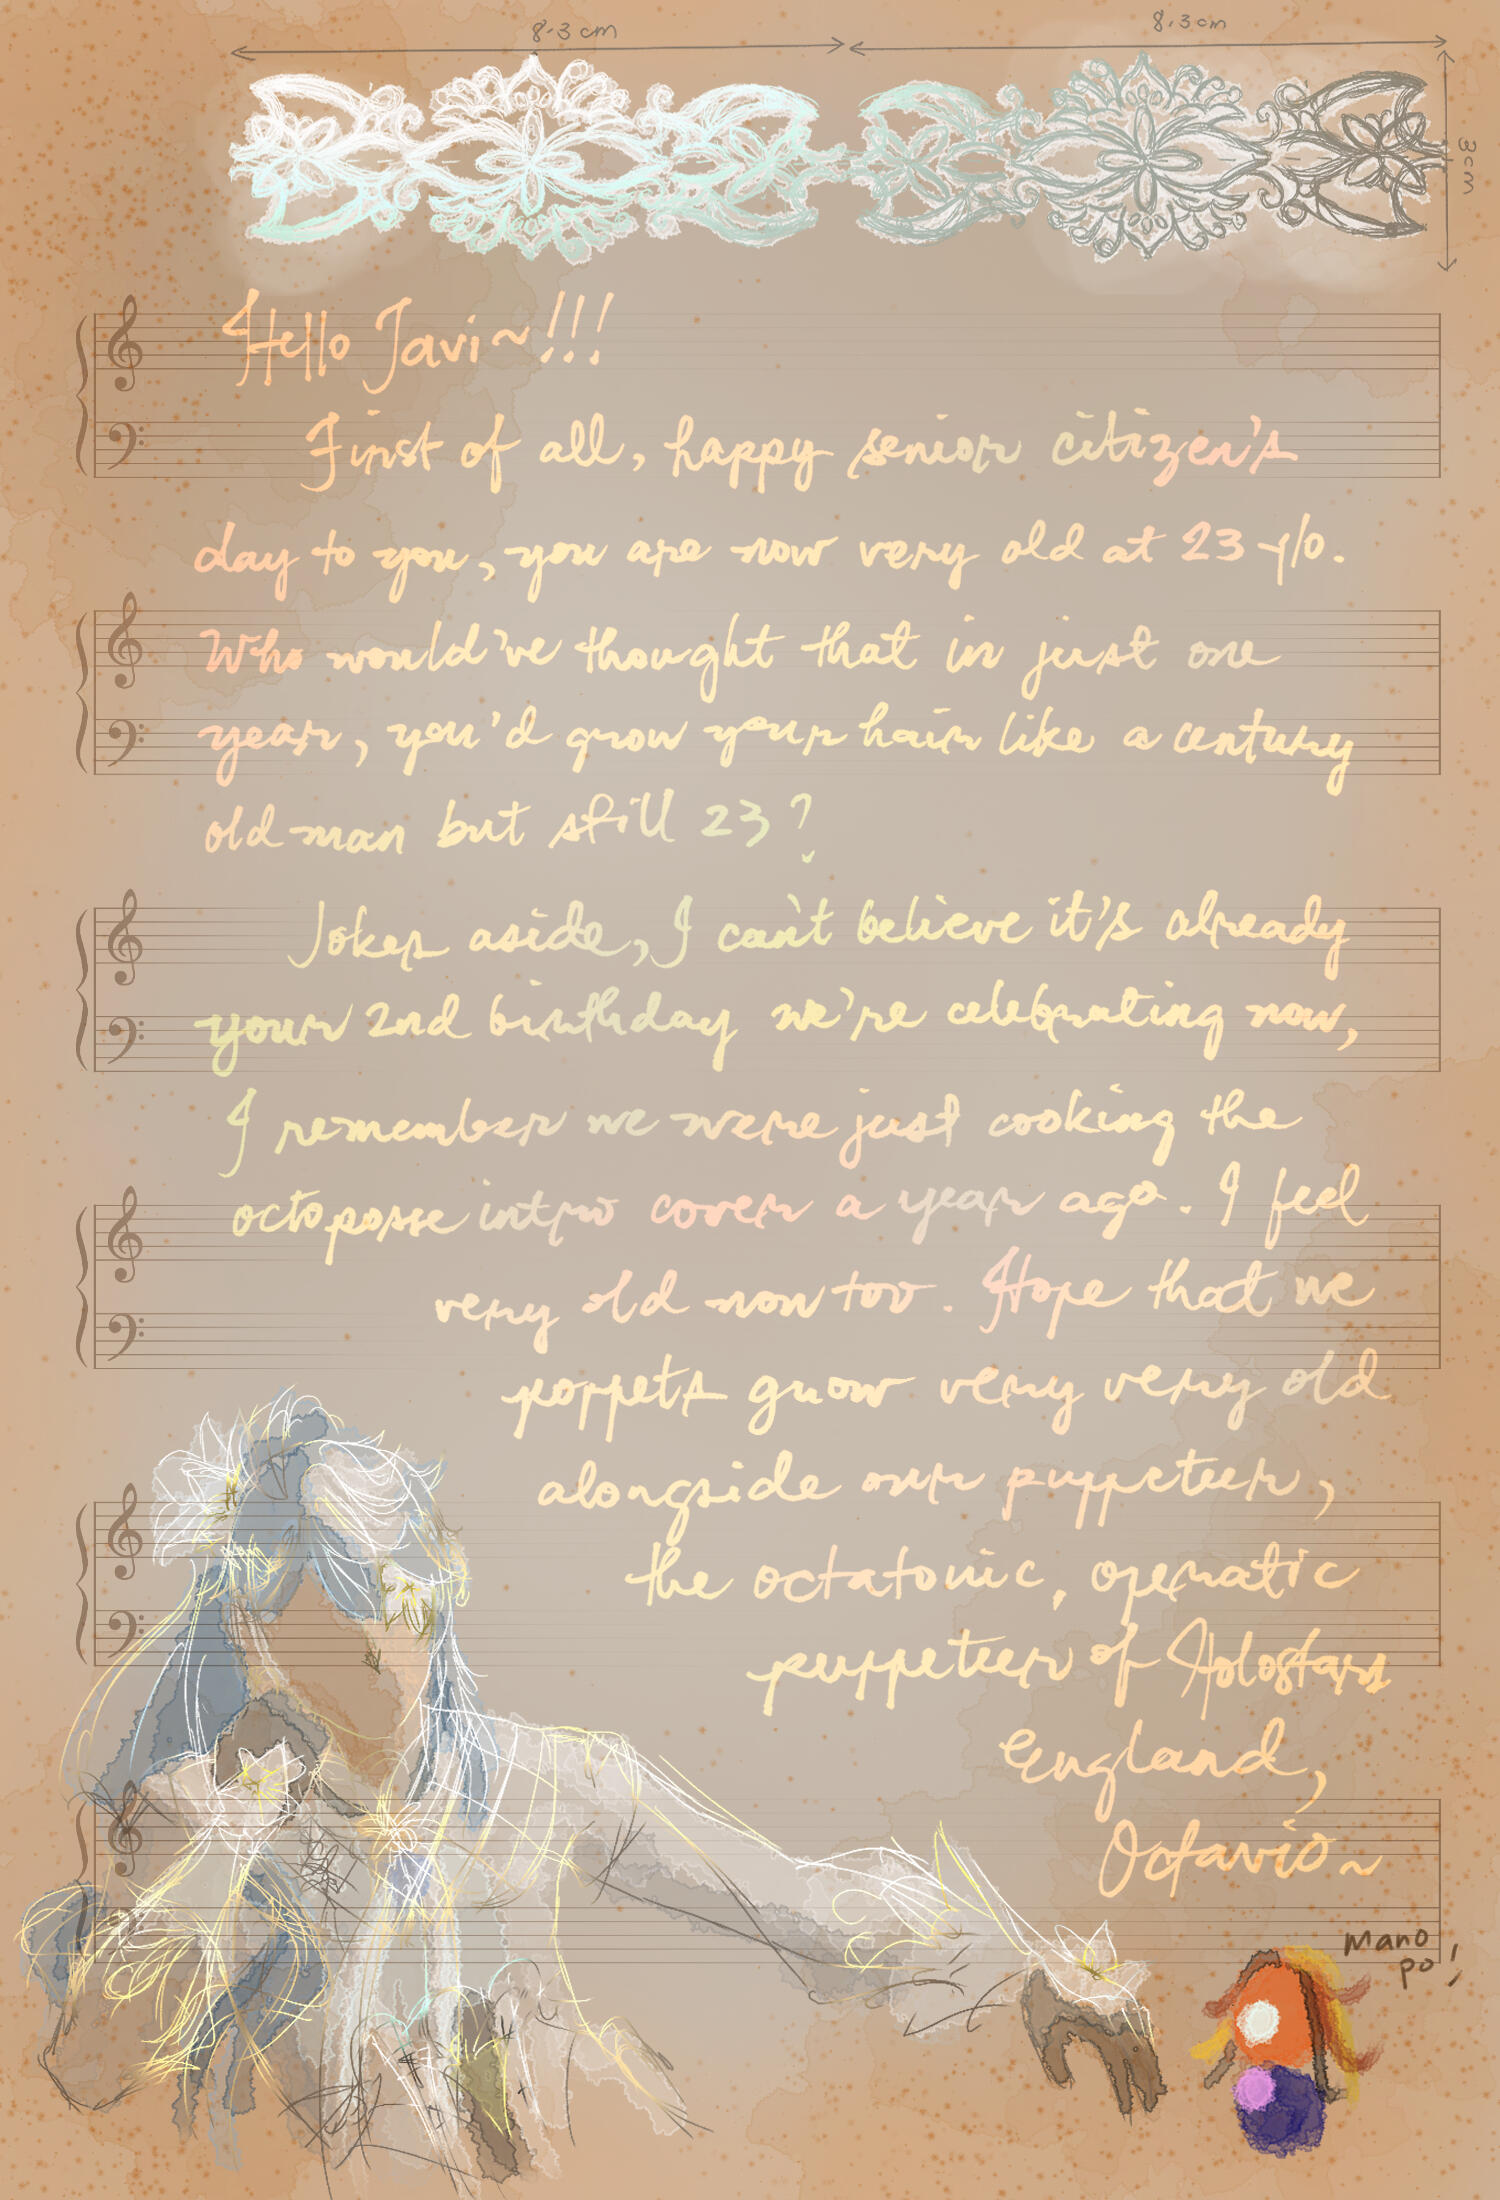 8.3 cm
8.3 cm
3cm
Hello Javi~!!!
First of all, happy senior citizen's
day to you, you are now very old at 23 y/o.
Who would've thought that in just one
year, you'd grow your hair like a century
old man but still 23?
Jokes aside, I can't believe it's already
your 2nd birthday we're celebrating now,
I remember we were just cooking the
octoposse intro cover a year ago. I feel
very old now too. Hope that we
poppets grow very very old
alongside our puppeteer,
the octatonic, operatic
puppeteer of Holostars
England,
Octavio~
Mano
po!